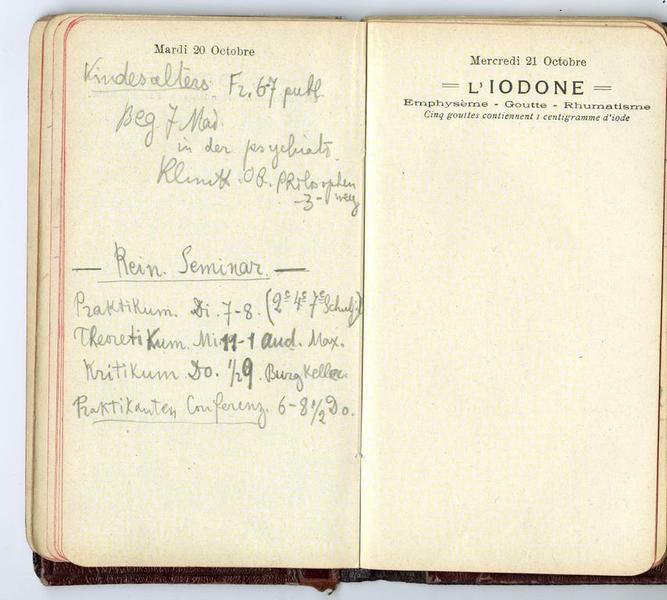 Mardi 20 Octobre
Kindesalters. Fr. 6-7 publ.
Beg 7 Mai
in der psychiatr.
Klinik. Ob. Philosophen
-3- weg
— Rein. Seminar. —
Praktikum. Di. 7-8. (2e 4e 7e Schulj.)
Theoretikum. Mi. 11-1 aud. Max.
Kritikum Do. 1/2 9. Burgkeller.
Praktikanten Conferenz. 6-8 1/2 Do.
Mercredi 21 Octobre
L'IODONE
Emphysème - Goutte - Rhumatisme
Cinq gouttes contiennent 1 centigramme d'iode